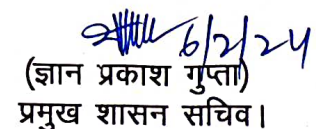 6/2/24
(ज्ञान प्रकाश गुप्ता)
प्रमुख शासन सचिव।